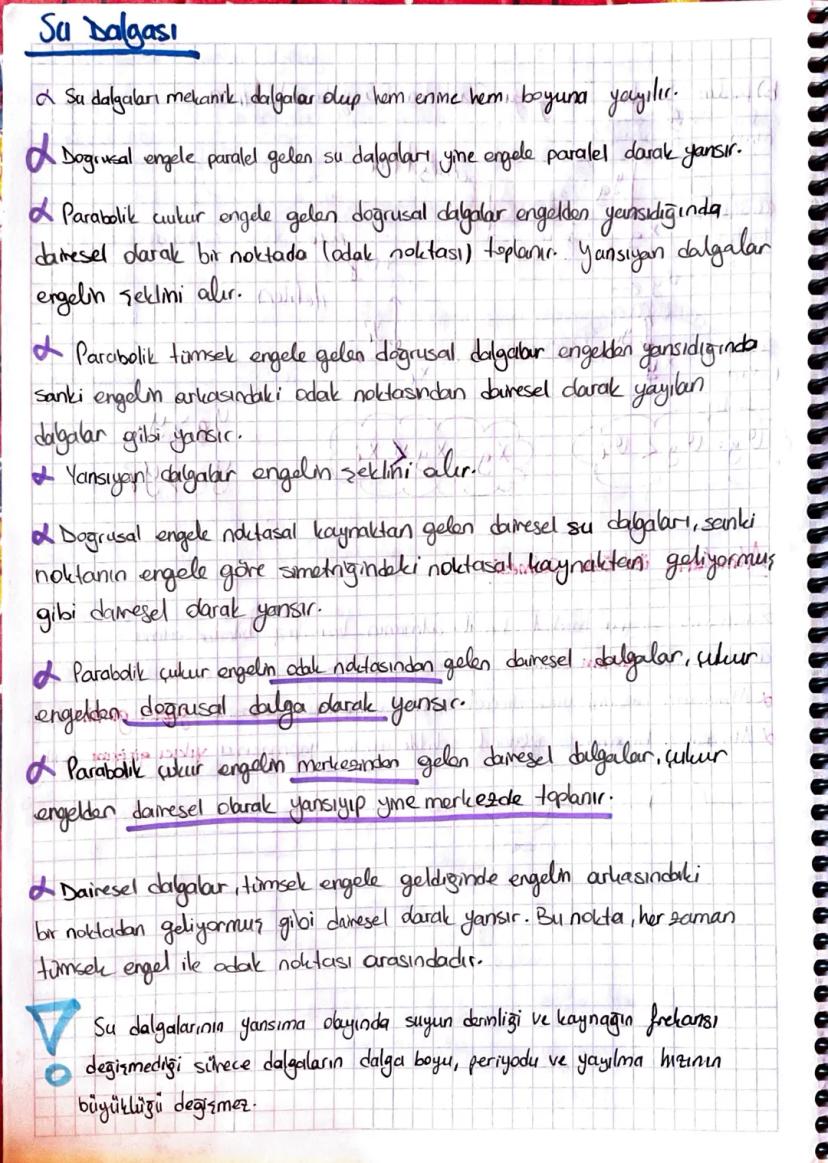 Su Dalgası
α Su dalgaları mekanik dalgalar olup hem enine hem boyuna yayılır.
α Doğrusal engele paralel gelen su dalgaları yine engele paralel olarak yansır.
α Parabolik çukur engele gelen doğrusal dalgalar engelden yansıdığında
dairesel olarak bir noktada (odak noktası) toplanır. Yansıyan dalgalar
engelin şeklini alır.
α Parabolik tümsek engele gelen doğrusal dalgalar engelden yansıdığında
sanki engelin arkasındaki odak noktasından dairesel olarak yayılan
dalgalar gibi yansır.
α Yansıyan dalgalar engelin şeklini alır.
α Doğrusal engele noktasal kaynaktan gelen dairesel su dalgaları, sanki
noktanın engele göre simetriğindeki noktasal kaynaktan geliyormuş
gibi dairesel olarak yansır.
α Parabolik çukur engelin odak noktasından gelen dairesel dalgalar, çukur
engelden doğrusal dalga olarak yansır.
α Parabolik çukur engelin merkezinden gelen dairesel dalgalar, çukur
engelden dairesel olarak yansıyıp yine merkezde toplanır.
α Dairesel dalgalar, tümsek engele geldiğinde engelin arkasındaki
bir noktadan geliyormuş gibi dairesel olarak yansır. Bu nokta, her zaman
tümsek engel ile odak noktası arasındadır.
! Su dalgalarının yansıma olayında suyun derinliği ve kaynağın frekansı
değişmediği sürece dalgaların dalga boyu, periyodu ve yayılma hızının
büyüklüğü değişmez.